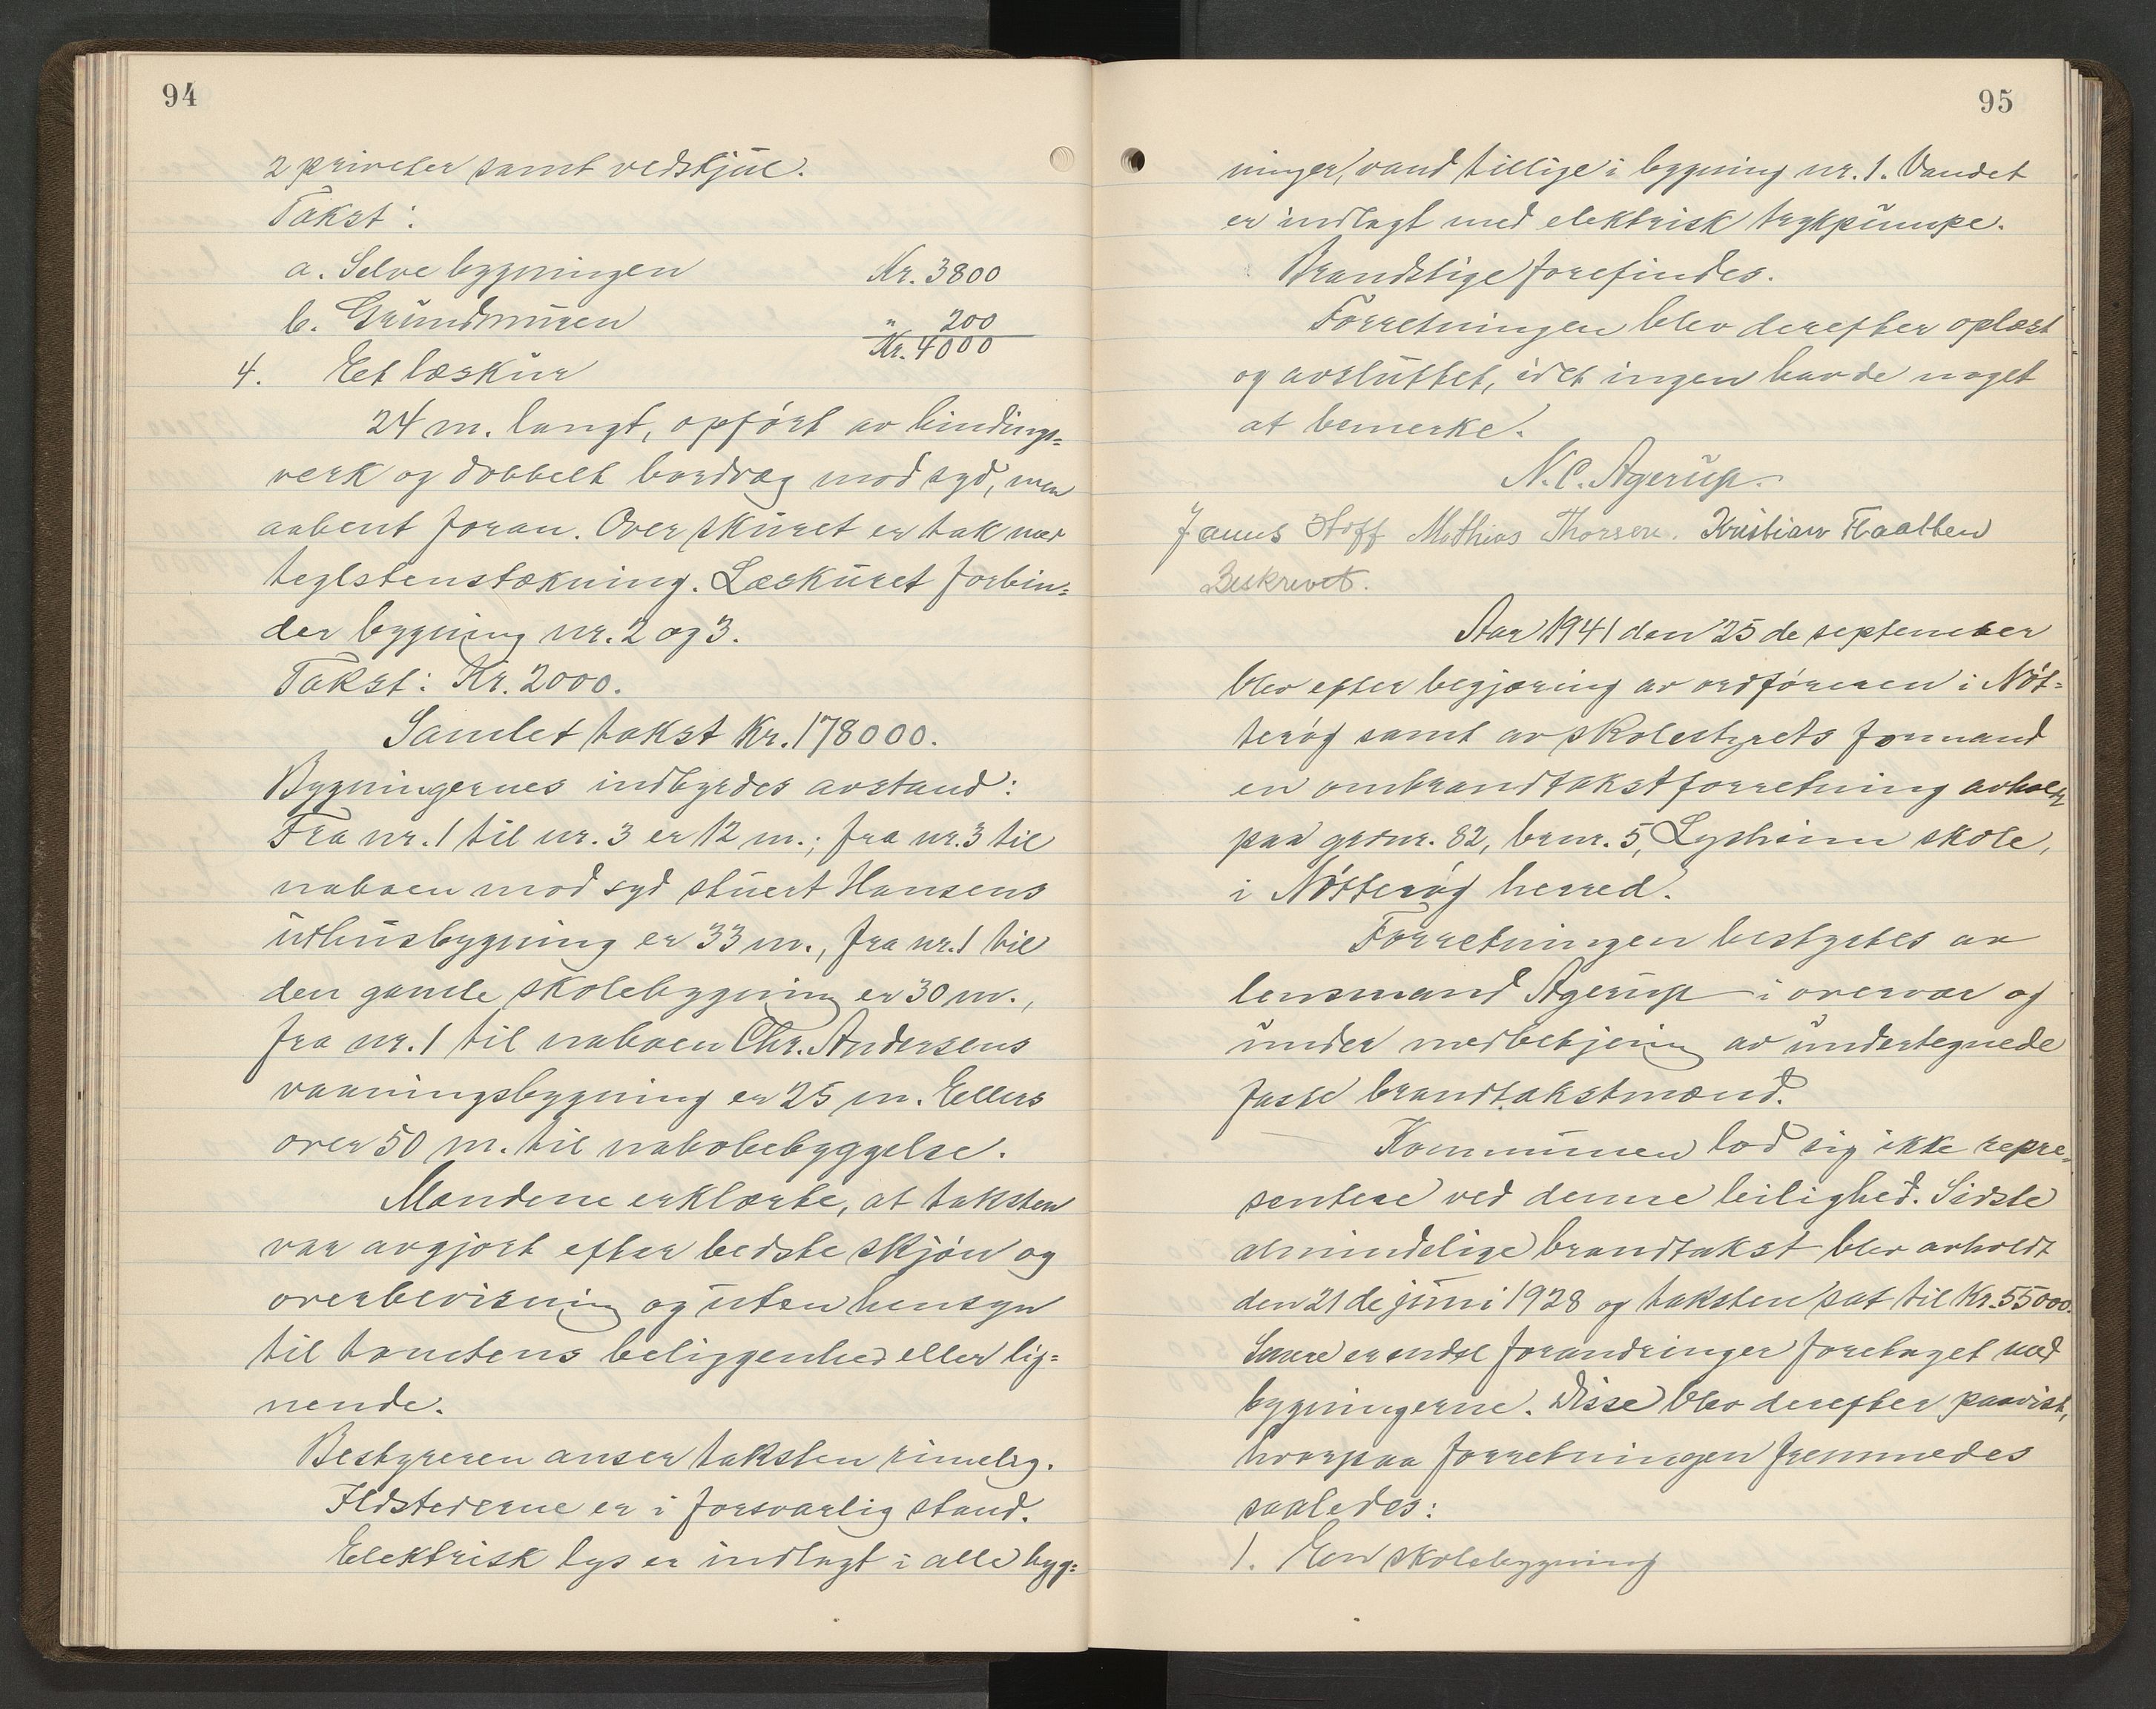 94
2 priveter samt vedskjul.
Takst:
a. Selve bygningen Kr. 3800
b. Grundmuren " 200
Kr. 4000
4. Et læskur
24 m. langt, opført av bindings=
verk og dobbelt bordvæg mod syd, men
aabent foran. Over skuret er tak med
teglstenstækning. Læskuret forbin=
der bygning nr. 2 og 3.
Takst: Kr. 2000.
Samlet takst Kr. 178000.
Bygningernes indbyrdes avstand:
Fra nr. 1 til nr. 3 er 12 m.; fra nr. 3 til
naboen mod syd stuert Hansens
uthusbygning er 33 m., fra nr. 1 til
den gamle skolebygning er 30 m.,
fra nr. 1 til naboen Chr. Andersens
vaaningsbygning er 25 m. Ellers
over 50 m. til nabobebyggelse.
Mændene erklærte, at taksten
var avgjort efter bedste skjøn og
overbevisning og uten hensyn
til tomtens beliggenhed eller lig=
nende.
Bestyreren anser taksten rimelig.
Ildstederne er i forsvarlig stand.
Elektrisk lys er indlagt i alle byg=
95
ninger, vand tillige i bygning nr. 1. Vandet
er indlagt med elektrisk trykpumpe.
Brandstige forefindes.
Forretningen blev derefter oplæst
og avsluttet, idet ingen havde noget
at bemerke.
N. C. Agerup.
Hoff Mathias Thorsen. Kristian Flaatten
Beskrevet.
Aar 1941 den 25 de september
blev efter begjæring av ordføreren i Nøt=
terøy samt av skolestyrets formand
en ombrandtakstforretning avholdt
paa grdnr. 82, brnr. 5, Lysheim skole,
i Nøtterøy herred.
Forretningen bestyrtes av
lensmand Agerup i overvær og
under medbetjening av undertegnede
faste brandtakstmænd.
Kommunen lod sig ikke repre=
sentere ved denne leilighed. Sidste
almindelige brandtakst blev avholdt
den 21 de juni 1928 og taksten sat til Kr. 55000.
Senere er endel forandringer foretaget ved
bygningerne. Disse blev derefter paavist,
hvorpaa forretningen fremmedes
saaledes:
1. En skolebygning